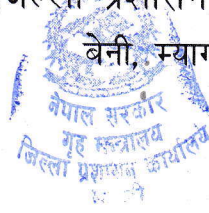 जिल्ला प्रशासन
बेनी, म्याग
नेपाल सरकार
गृह मन्त्रालय
जिल्ला प्रशासन कार्यालय